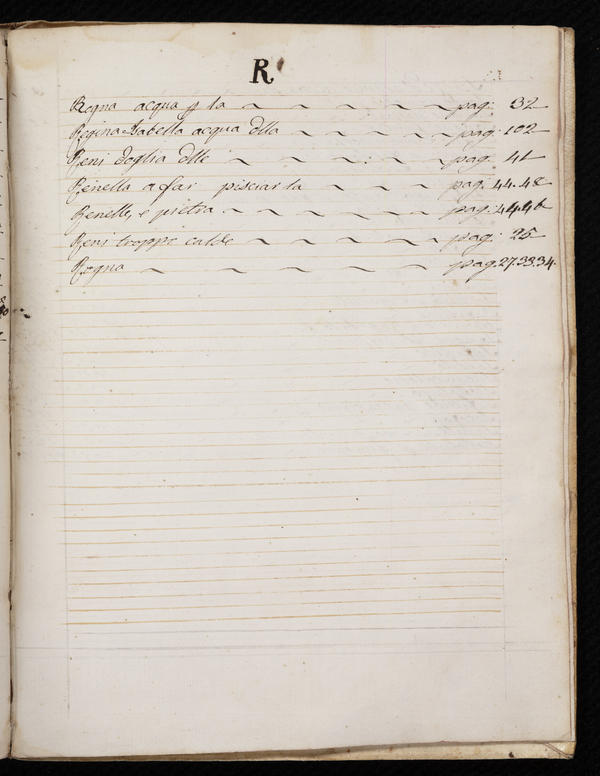 R
Rogna acqua p la pag: 32
Regina Isabella acqua dlla pag: 102
Reni doglia dlle pag: 41
Renella a far pisciar la pag: 44.48
Renelle, e pietra pag: 44.46
Reni troppo calde pag: 25
Rogna pag. 27.33.34.